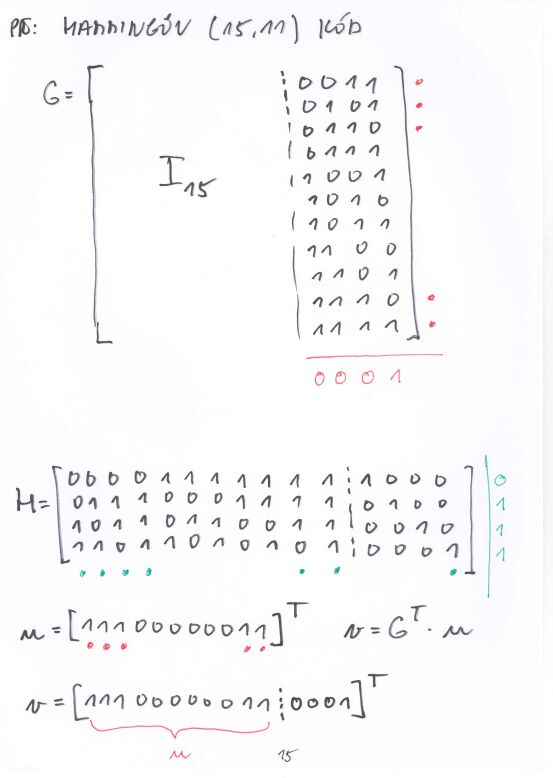 PŘ: HAMMINGŮV (15,11) KÓD
G = [ I₁₅ ¦ 0 0 1 1 ]
0 1 0 1
0 1 1 0
0 1 1 1
1 0 0 1
1 0 1 0
1 0 1 1
1 1 0 0
1 1 0 1
1 1 1 0
1 1 1 1
0 0 0 1
H = [ 0 0 0 0 1 1 1 1 1 1 1 ¦ 1 0 0 0 ] | 0
0 1 1 1 0 0 0 1 1 1 1 ¦ 0 1 0 0 | 1
1 0 1 1 0 1 1 0 0 1 1 ¦ 0 0 1 0 | 1
1 1 0 1 1 0 1 0 1 0 1 ¦ 0 0 0 1 | 1
u = [11100000011]ᵀ v = Gᵀ · u
v = [11100000011¦0001]ᵀ
u
15